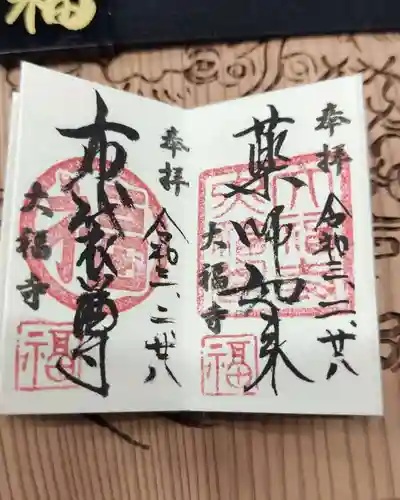 福
奉拝
薬師如来
令和三、二、廿八
大福寺
福
奉拝
布袋尊
令和三、二、廿八
大福寺
福
福